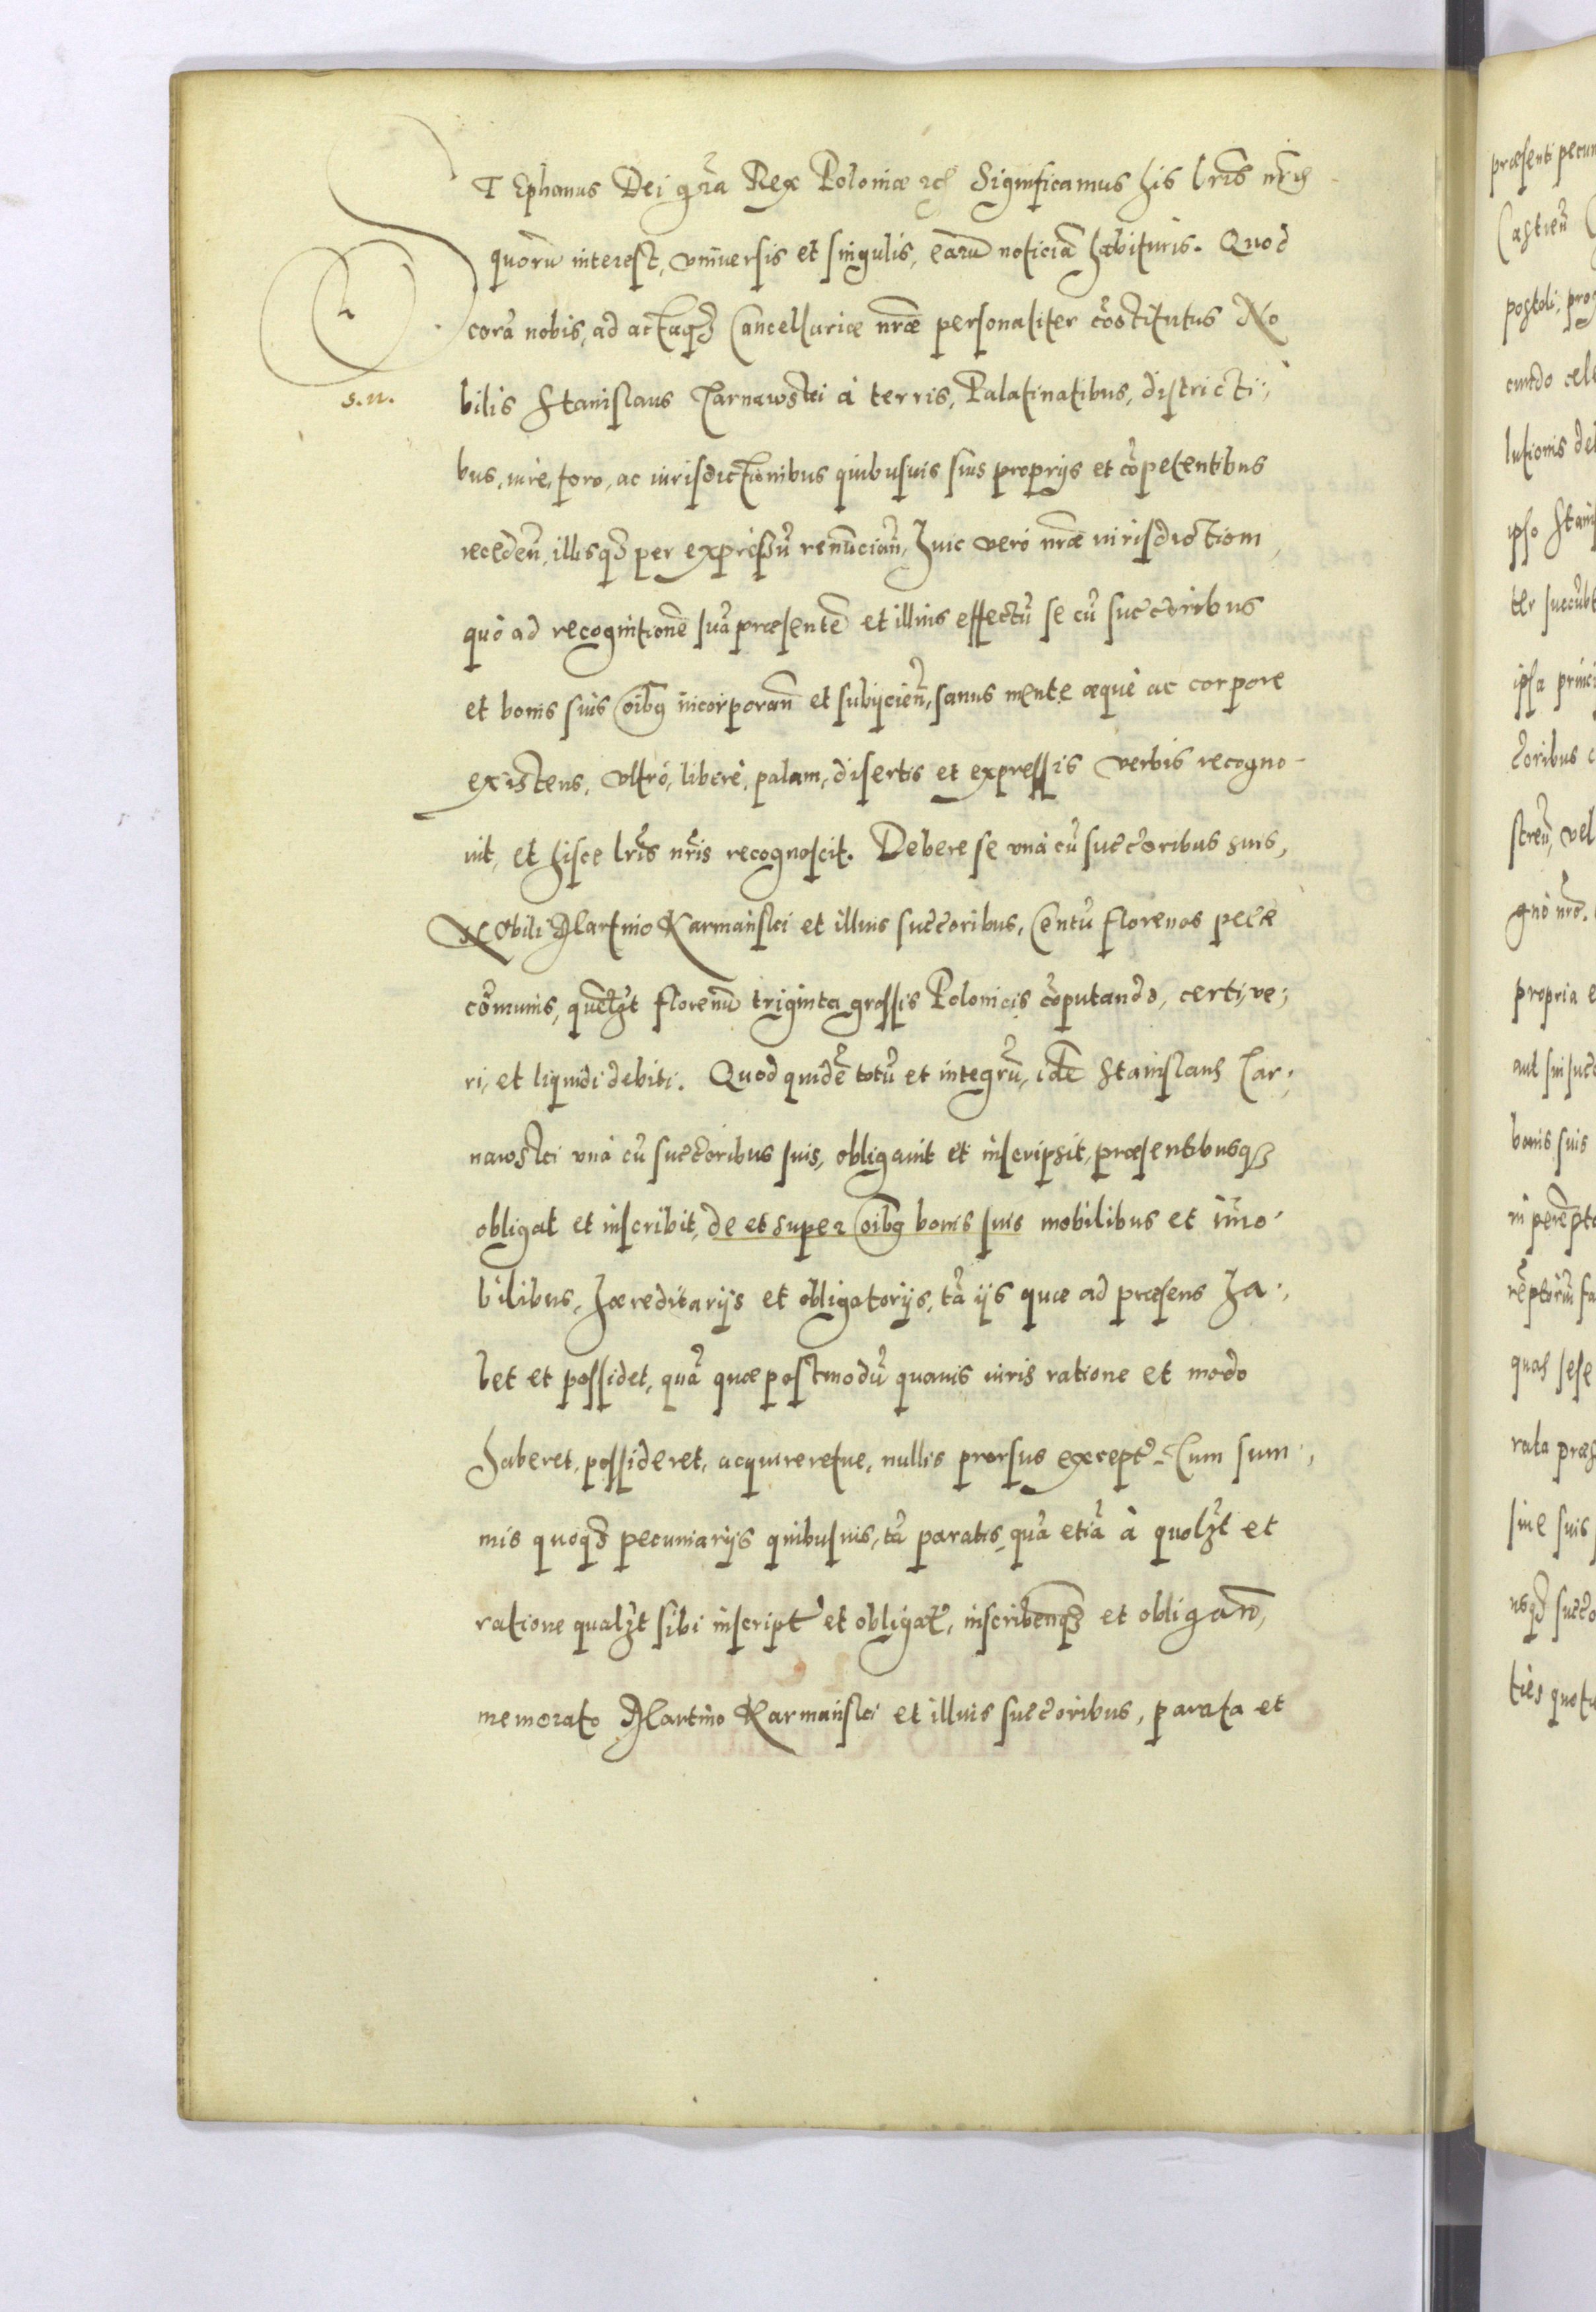 STEphanus Dei gr̃a Rex Poloniæ etc̃ Significamus his lr̃is nr̃is
quorũ interest, vniuersis et singulis, earũ noticiã habituris. Quod
corã nobis, ad actaq3 Cancellariæ nr̃æ personaliter cõstitutus No
s.n.
bilis Stanislaus Czarnawski à terris, Palatinatibus, districti,
bus, iure, foro, ac iurisdictionibus quibusuis suis proprijs et cõpetentibus
receden̄, illisq3 per expressũ renuncian̄, huic verò nr̃æ iurisdictioni,
quò ad recognitionẽ suã præsentẽ et illius effectũ se cũ succ̃oribus
et bonis suis õibq incorporan̄ et subijcien̄, sanus mente æquè ac corpore
existens, vltrò, liberè, palam, disertis et expressis verbis recogno-
uit, et hisce lr̃is nr̃is recognoscit. Debere se vnà cũ succ̃oribus suis,
Nobili Martino Karmański et illius succ̃oribus, Centũ florenos pec̃æ
cõmunis, quẽlʒt florenũ triginta grossis Polonicis cõputando, certi, ve,
ri, et liquidi debiti. Quod quidẽ totũ et integrũ, idẽ Stanislaus Czar,
nawski vnà cũ succ̃oribus suis, obligauit et inscripsit, præsentibusq3
obligat et inscribit, de et super õibq bonis suis mobilibus et im̃o
bilibus, hæreditarijs et obligatorijs, tã ijs quæ ad præsens ha,
bet et possidet, quã quæ postmodũ quouis iuris ratione et modo
haberet, possideret, acquireretue, nullis prorsus except̃. Cum sum,
mis quoq3 pecuniarijs quibusuis, tã paratis, quã etiã à quolʒt et
ratione qualʒt sibi inscript̃ et obligat̃, inscriben̄q3 et obligan̄,
memorato Martino Karmański et illius succ̃oribus, parata et
præsenti pecun
Castreñ
postoli, pro
cundo cele
lutionis deb
ipso Stani
ter succub
ipsa princi
c̃oribus c
streñ, vel
gnò nr̃o.
propria e
aut sui succ
bonis suis
in perẽpto
rẽptoriũ fa
quas sese
rata præs
siue suis
usq3 succ̃o
ties quotu